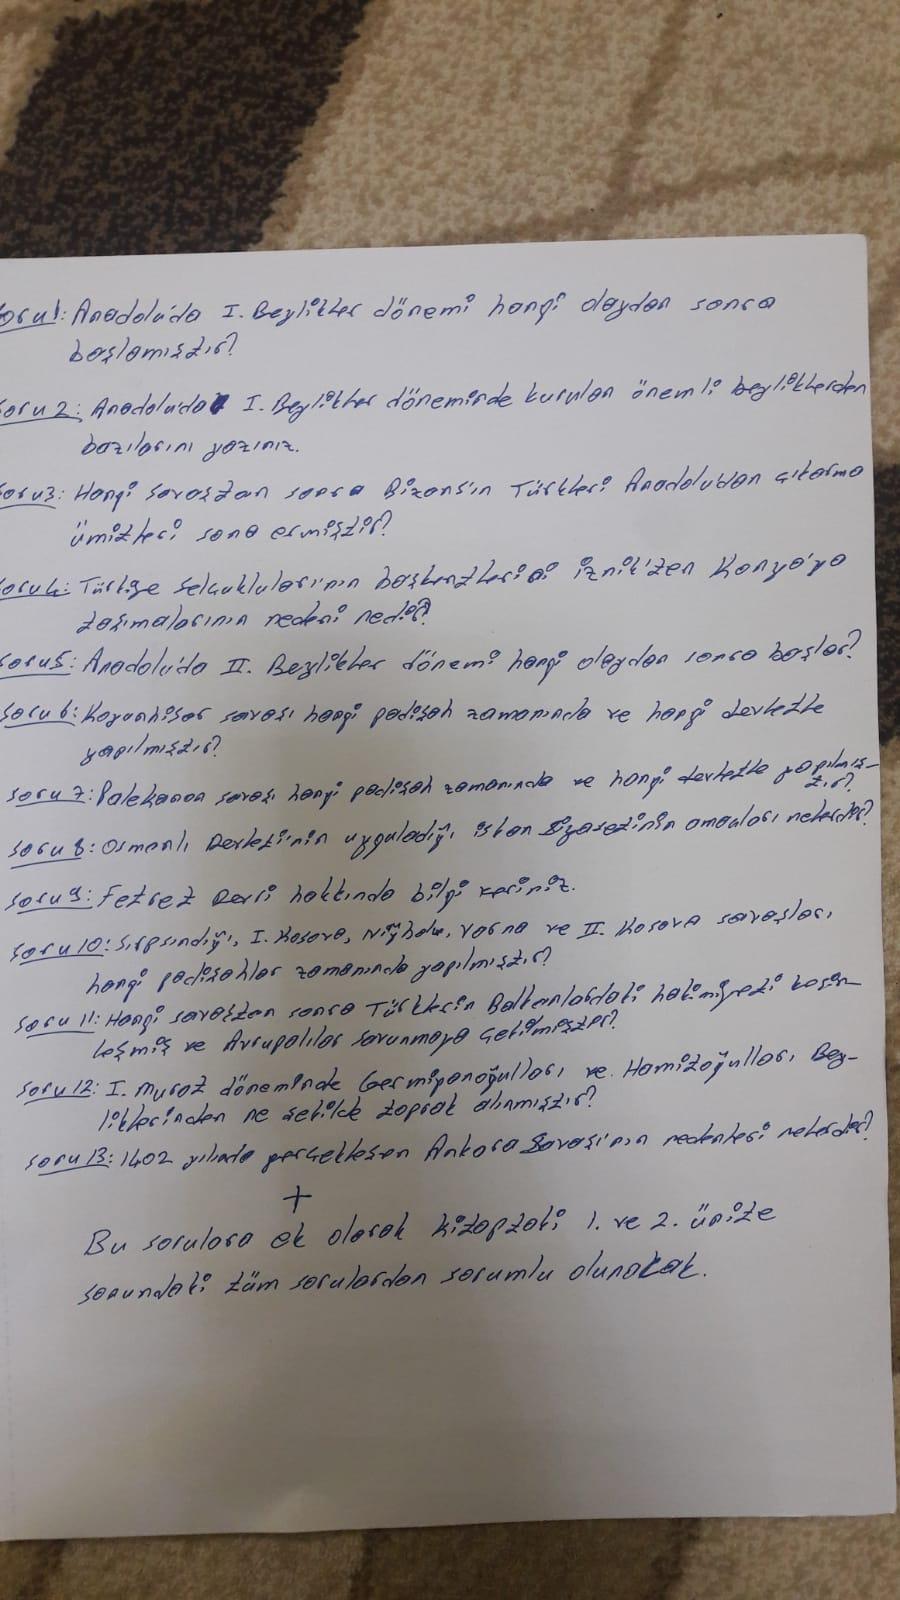 Soru1: Anadolu'da I. Beylikler dönemi hangi olaydan sonra
başlamıştır?
Soru 2: Anadolu'da I. Beylikler döneminde kurulan önemli beyliklerden
bazılarını yazınız.
Soru3: Hangi savaştan sonra Bizans'ın Türkleri Anadolu'dan çıkarma
ümitleri sona ermiştir?
Soru4: Türkiye Selçukluları'nın başkentlerini İznik'ten Konya'ya
taşımalarının nedeni nedir?
Soru5: Anadolu'da II. Beylikler dönemi hangi olaydan sonra başlar?
Soru 6: Koyunhisar savaşı hangi padişah zamanında ve hangi devletle
yapılmıştır?
Soru 7: Palekanon savaşı hangi padişah zamanında ve hangi devletle yapılmış-
tır?
Soru 8: Osmanlı Devleti'nin uyguladığı iskan siyasetinin amaçları nelerdir?
Soru 9: Fetret Devri hakkında bilgi veriniz.
Soru 10: Sırpsındığı, I. Kosova, Niğbolu, Varna ve II. Kosova savaşları
hangi padişahlar zamanında yapılmıştır?
Soru 11: Hangi savaştan sonra Türklerin Balkanlardaki hakimiyeti kesin-
leşmiş ve Avrupalılar savunmaya çekilmiştir?
Soru 12: I. Murat döneminde Germiyanoğulları ve Hamitoğulları Bey-
liklerinden ne şekilde toprak alınmıştır?
Soru 13: 1402 yılında gerçekleşen Ankara Savaşı'nın nedenleri nelerdir?
+
Bu sorulara ek olarak kitaptaki 1. ve 2. ünite
sonundaki tüm sorulardan sorumlu olunacak.